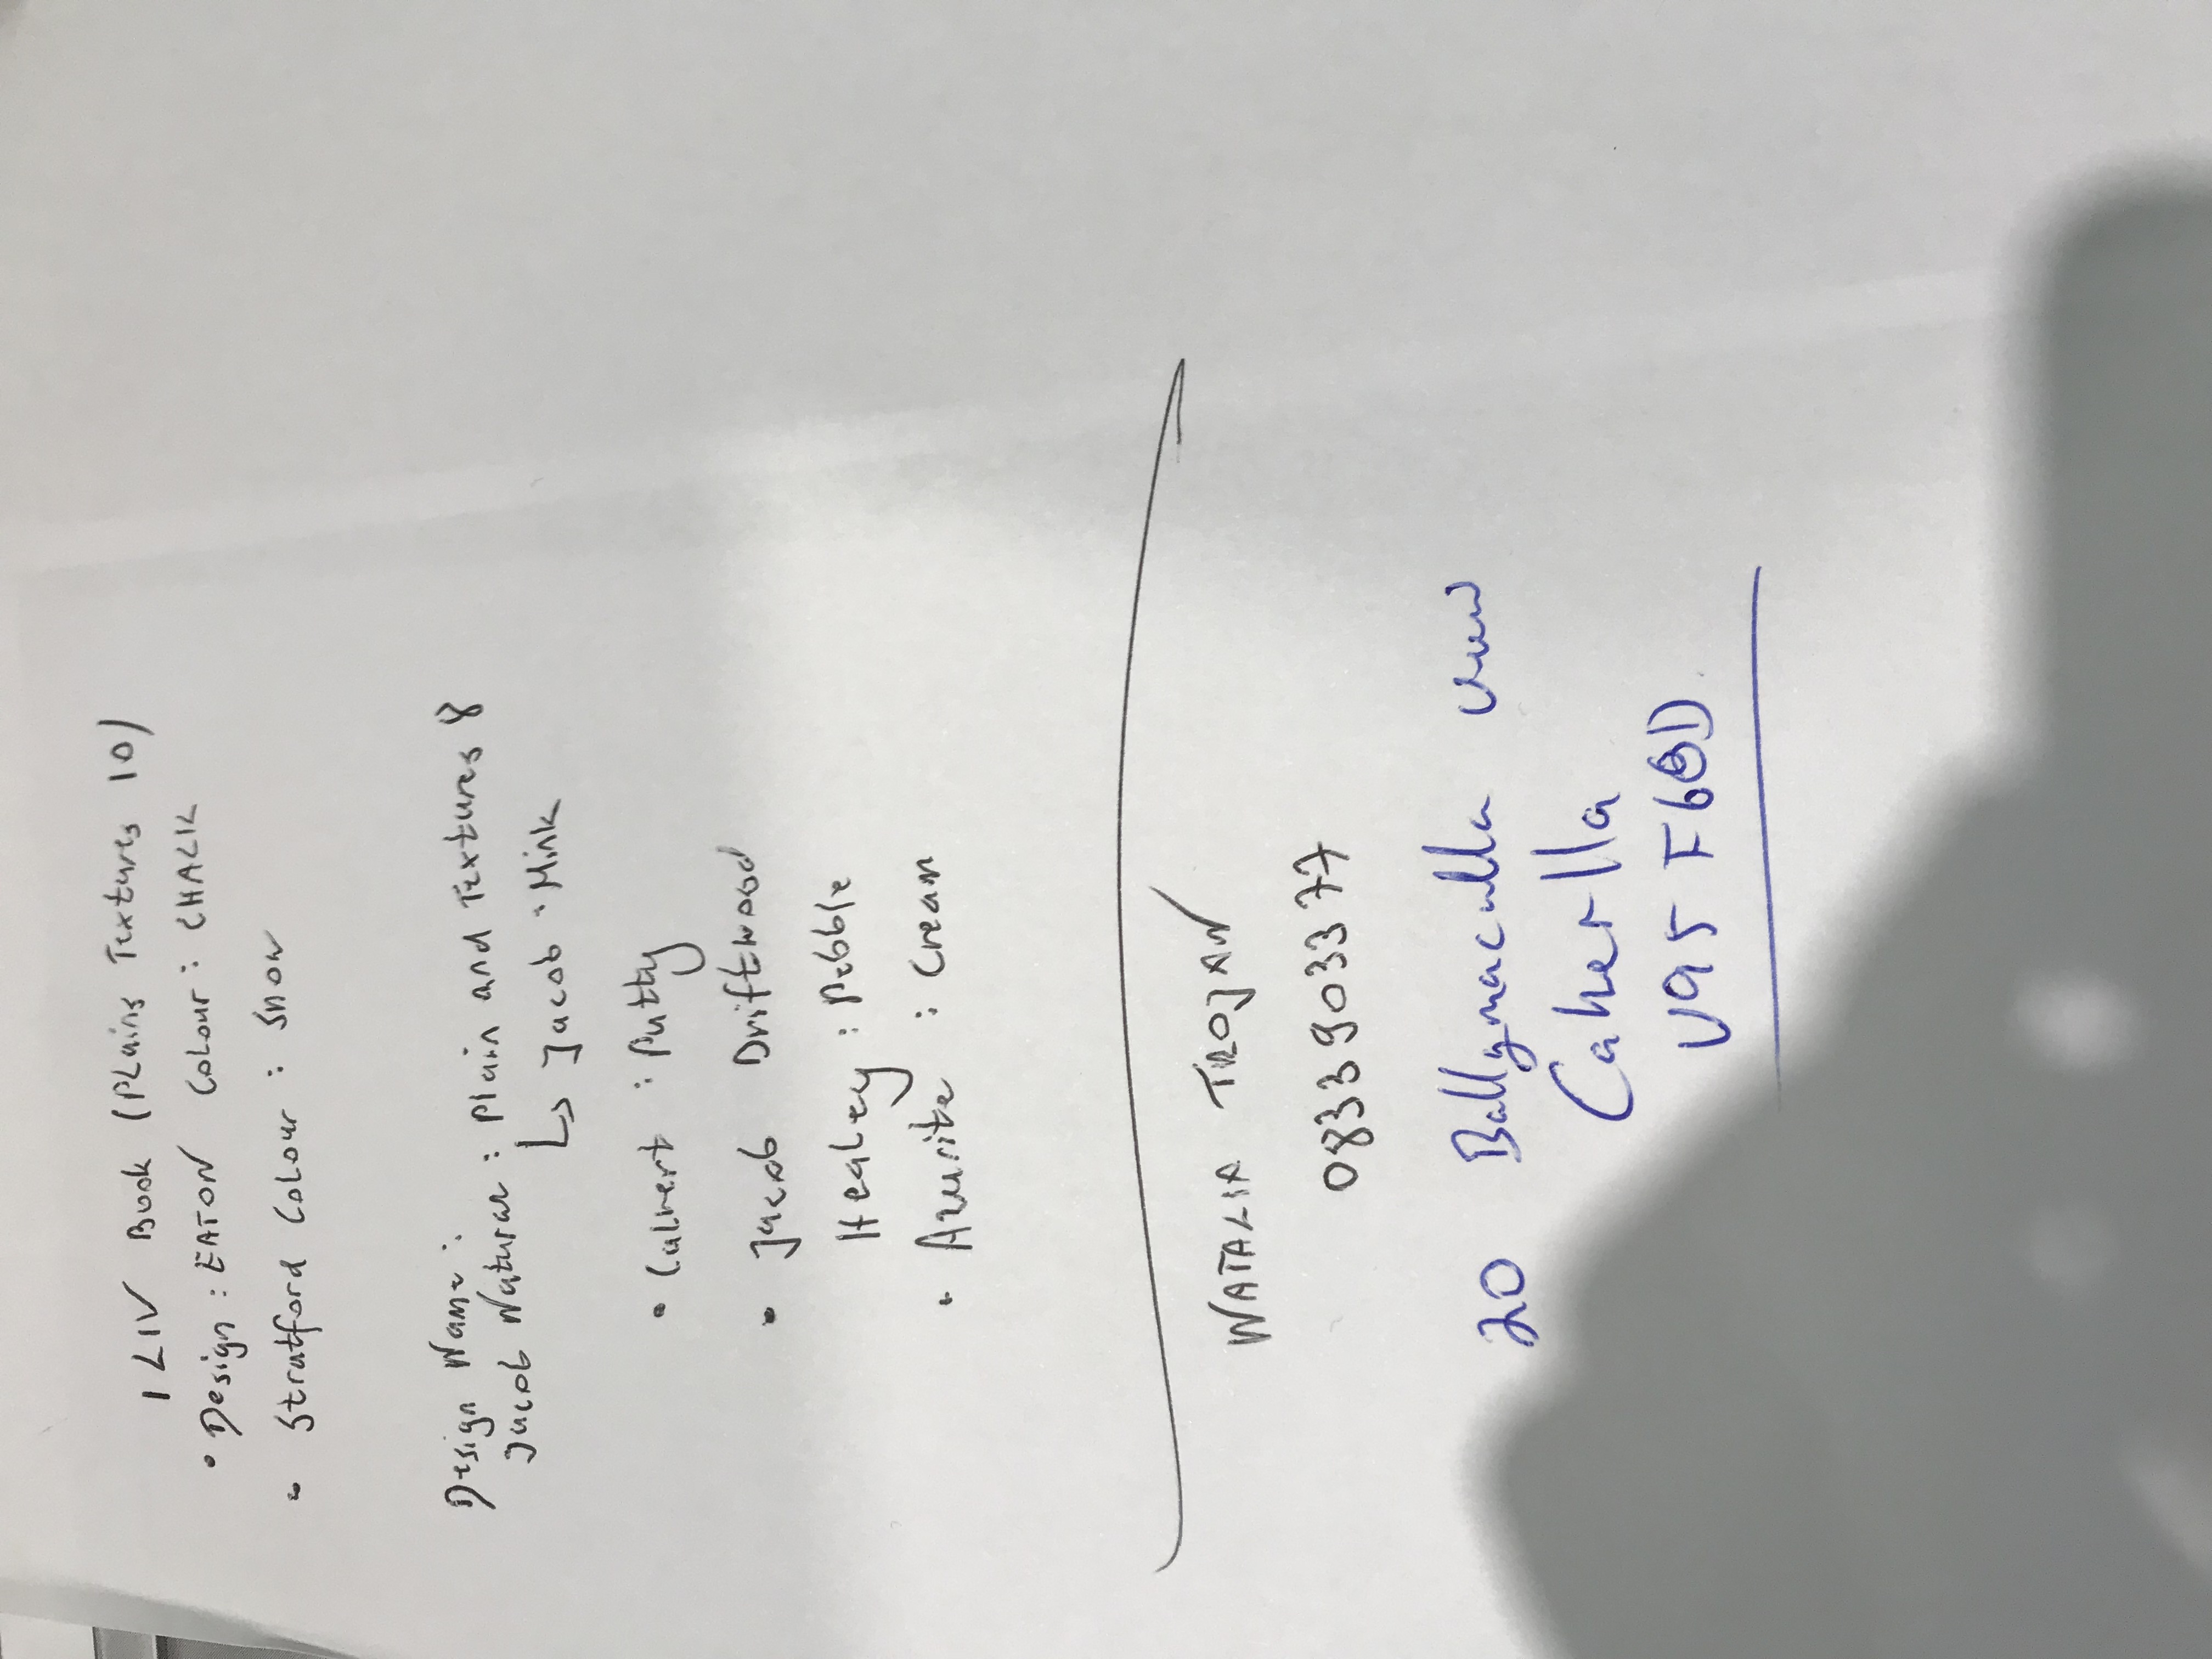 1 LIV Book (PLains Textures 10)
• Design : EATON Colour : CHALK
• Stratford Colour : Snow
Design Name :
Jacob Natural : Plain and Textures 8
↳ Jacob · Mink
• Calvert : Putty
• Jacob Driftwood
Healey : Pebble
• Azurite : Cream
NATALIA TROJAN
0833903377
20 Ballymaculla view
Caherlla
V95 F66D